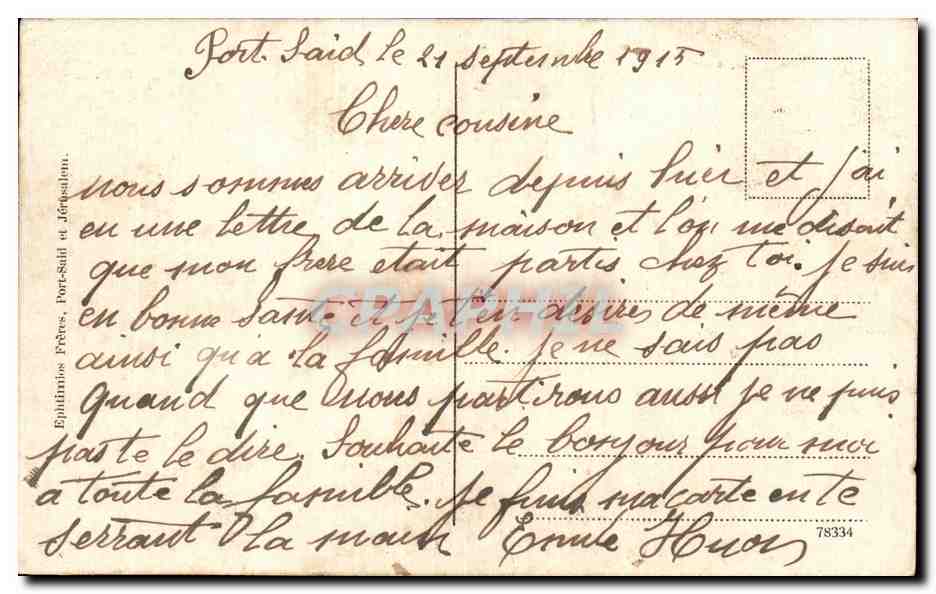 Port Said, le 21 septembre 1915
Chere cousine
nous sommes arriver depuis hier et j'ai
eu une lettre de la maison et l'on me disait
que mon frere etait partis chez toi. Je suis
en bonne santé et je t'en desires de même
ainsi qu'a la famille. je ne sais pas
quand que nous partirons aussi je ne puis
pas te le dire. Souhaite le bonjour pour moi
a toute la famille. je finis ma carte en te
serrant la main Emile Huon
Ephtimios Frères, Port-Said et Jérusalem.
78334
CPAPHIL